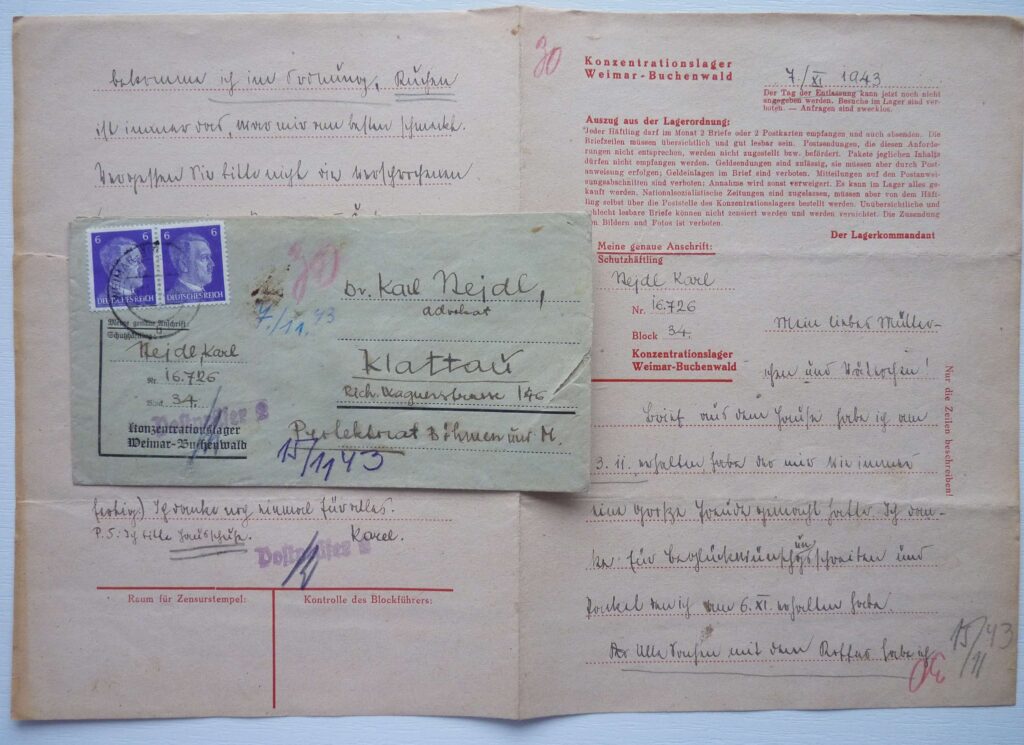 bekomme ich in Ordnung, Kuchen
ist immer das, was mir am besten schmeckt.
Vergessen Sie bitte nicht die versprochenen
30
Konzentrationslager
Weimar-Buchenwald
7./XI 1943
Der Tag der Entlassung kann jetzt noch nicht
angegeben werden. Besuche im Lager sind ver-
boten. — Anfragen sind zwecklos.
Auszug aus der Lagerordnung:
Jeder Häftling darf im Monat 2 Briefe oder 2 Postkarten empfangen und auch absenden. Die
Briefzeilen müssen übersichtlich und gut lesbar sein. Postsendungen, die diesen Anforde-
rungen nicht entsprechen, werden nicht zugestellt bzw. befördert. Pakete jeglichen Inhalts
dürfen nicht empfangen werden. Geldsendungen sind zulässig, sie müssen aber durch Post-
anweisung erfolgen; Geldeinlagen im Brief sind verboten. Mitteilungen auf den Postanwei-
sungsabschnitten sind verboten; Annahme wird sonst verweigert. Es kann im Lager alles ge-
kauft werden. Nationalsozialistische Zeitungen sind zugelassen, müssen aber von dem Häft-
ling selbst über die Poststelle des Konzentrationslagers bestellt werden. Unübersichtliche und
schlecht lesbare Briefe können nicht zensiert werden und werden vernichtet. Die Zusendung
von Bildern und Fotos ist verboten.
Der Lagerkommandant
Meine genaue Anschrift:
Schutzhäftling
Nejdl Karl
Nr. 16.726
Block 34.
Konzentrationslager
Weimar-Buchenwald
Nur die Zeilen beschreiben!
Mein liebes Mütter-
chen und Väterchen!
Brief aus dem Hause habe ich am
3. 11. erhalten habe der mir wie immer
eine große Freude gemacht hatte. Ich dan-
ke für Beglückwünschungsschreiben und
Packel den ich am 6. XI. erhalten habe.
Alle Sachen mit dem Koffer habe ich
30
15/11 43
6 6
DEUTSCHES REICH
6
DEUTSCHES REICH
WEIMAR
30
7./11. 43
Dr. Karl Nejdl,
advokat
Klattau
Rich. Wagnerstrasse 146
Protektorat Böhmen und M.
15/11 43
Meine genaue Anschrift:
Schutzhäftling
Nejdl Karl
Nr. 16.726
Block 34.
Konzentrationslager
Weimar-Buchenwald
Postzensor 2
fertig.) Ich danke noch einmal für alles.
P.S: Ich bitte Hausschuhe. Karel.
Postzensor 2
Raum für Zensurstempel:
Kontrolle des Blockführers: